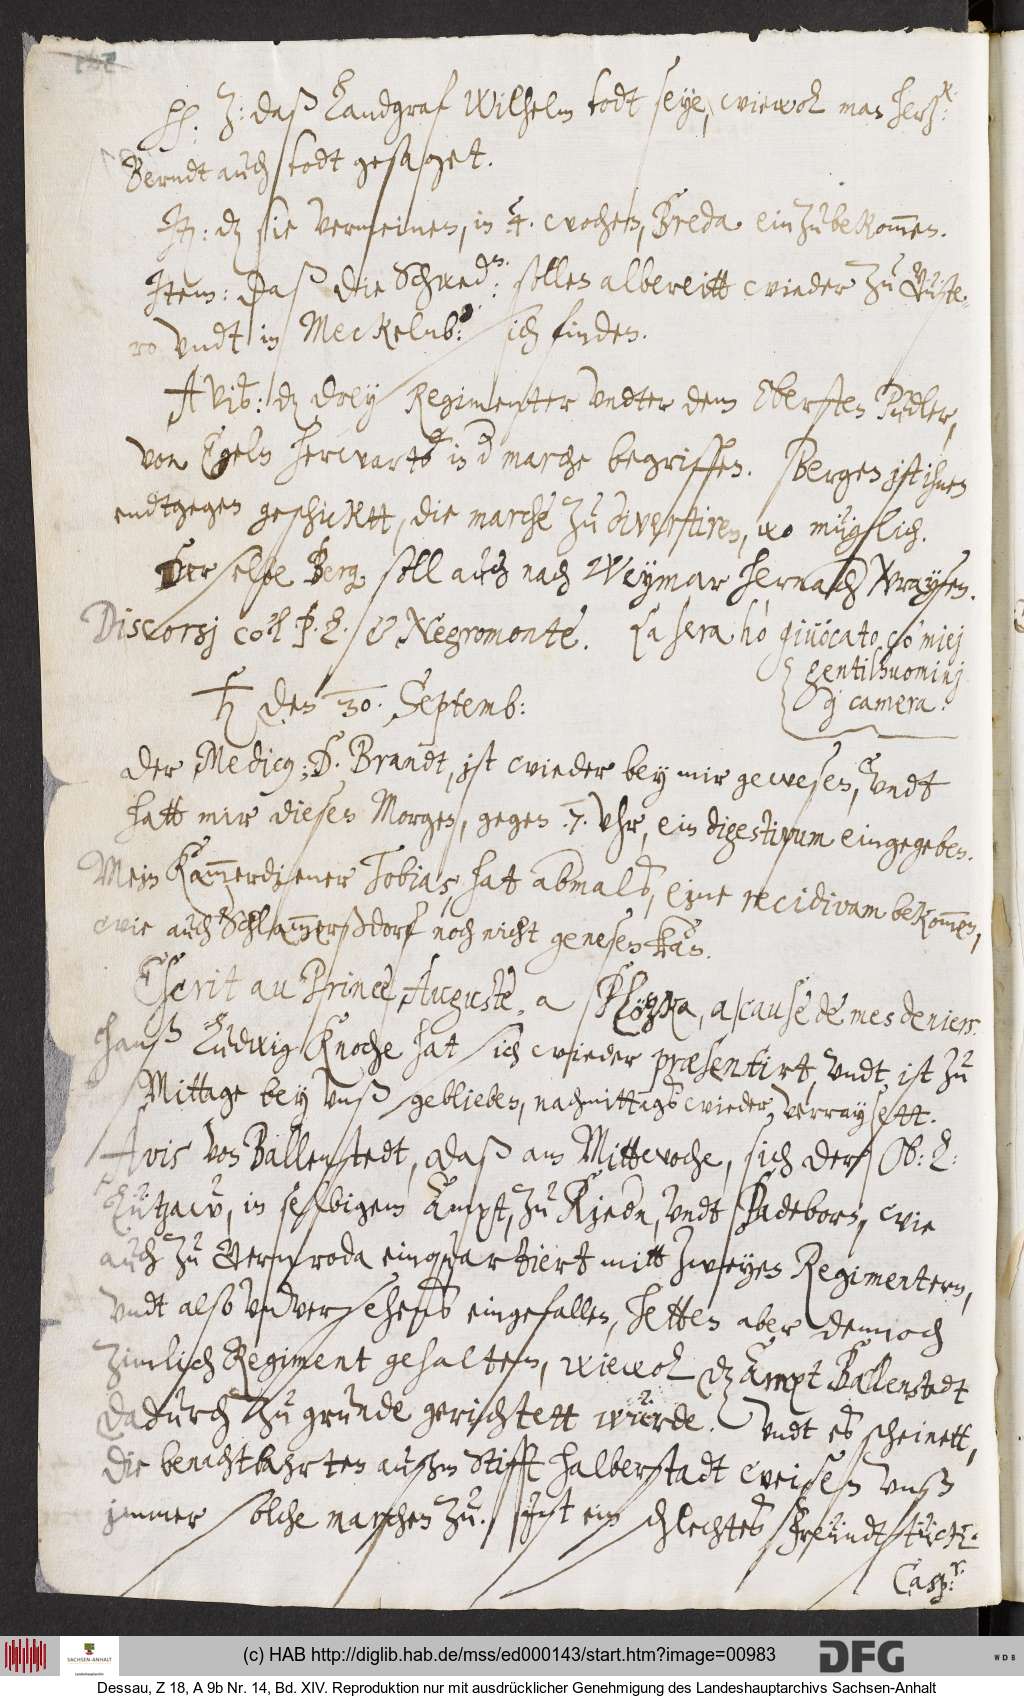 Z: daß Landgraf Wilhelm todt seye, wiewol man
Berndt auch todt gesaget.
It: dz sie vermeinen, in 4. wochen, Breda einzubekommen.
Item: Daß die Schwed: sollen albereitt wieder zu Güst-
ro undt in Meckelnb: sich finden.
Avis: dz drey Regimenter undter dem Obersten Pudler,
von Egeln herwarts in d marche begriffen. Bergen ist ihnen
endtgegen geschicktt, die marche zu divertiren, wo müglich.
Derselbe Berg soll auch nach Weymar hernach vrraysen.
Discorsj col P. L. & Negromonte. La sera hò giuocato, co miej
gentilhuominj
dj camera.
♄ den 30. Septemb:
der Medicus, D. Brandt, ist wieder bey mir gewesen, undt
hatt mir diesen Morgen, gegen .7. Uhr, ein digestivum eingegeben.
Mein Kammerdiener Tobias, hat abmals, eine recidivam bekommen,
wie auch Schlammerßdorf noch nicht genesen kan.
Escrit au Prince Auguste, a Plötzka, a cause de mes deniers.
Hanß Ludwig Knoche hat sich wieder præsentirt, undt ist zu
Mittage bey unß geblieben, nachmittags wieder, verraysett.
Avis von Ballenstedt, daß am Mittwoche, sich der Ob: L:
Lützaw, in selbigem Ampt, zu Riedn, undt Padeborn, wie
auch zu Vermroda einquartiert mitt zweyen Regimentern,
undt also unversehens eingefallen, hetten aber dennoch
zimlich Regiment gehalten, wiewol dz Ampt Ballenstedt
dadurch zu grunde gerichtett würde. Undt es scheinett,
die benachtbahrten außm Stifft Halberstadt weisen unß
immer solche marchen zu. Ist ein schlechtes freundtstück.
Casp:r
(c) HAB http://diglib.hab.de/mss/ed000143/start.htm?image=00983
DFG
WDB
SACHSEN-ANHALT
Landeshauptarchiv
Dessau, Z 18, A 9b Nr. 14, Bd. XIV. Reproduktion nur mit ausdrücklicher Genehmigung des Landeshauptarchivs Sachsen-Anhalt